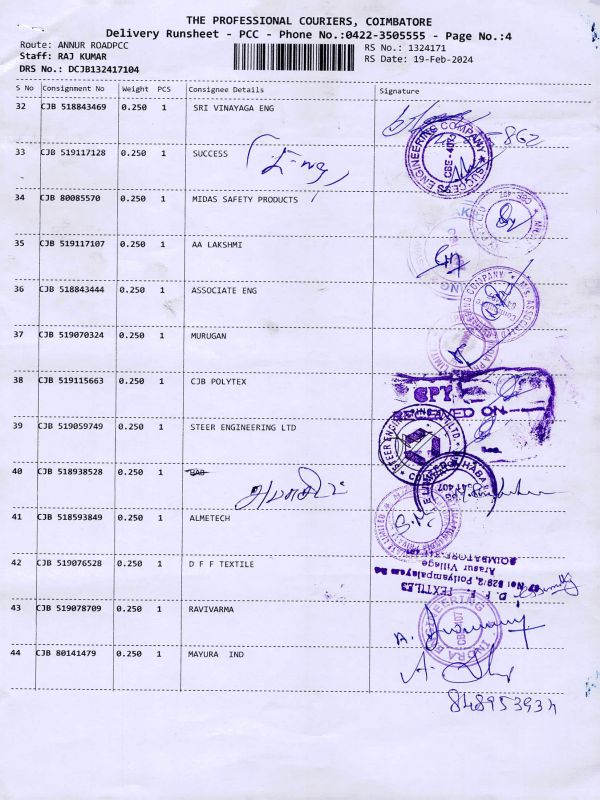 THE PROFESSIONAL COURIERS, COIMBATORE
Delivery Runsheet - PCC - Phone No.:0422-3505555 - Page No.:4
Route: ANNUR ROADPCC
Staff: RAJ KUMAR
DRS No.: DCJB132417104
RS No.: 1324171
RS Date: 19-Feb-2024
S No Consignment No Weight PCS Consignee Details Signature
32 CJB 518843469 0.250 1 SRI VINAYAGA ENG
33 CJB 519117128 0.250 1 SUCCESS
SUCCESS ENGINEERING COMPANY
CBE-407
34 CJB 80085570 0.250 1 MIDAS SAFETY PRODUCTS
35 CJB 519117107 0.250 1 AA LAKSHMI
36 CJB 518843444 0.250 1 ASSOCIATE ENG
37 CJB 519070324 0.250 1 MURUGAN
38 CJB 519115663 0.250 1 CJB POLYTEX
39 CJB 519059749 0.250 1 STEER ENGINEERING LTD
40 CJB 518938528 0.250 1
41 CJB 518593849 0.250 1 ALMETECH
42 CJB 519076528 0.250 1 D F F TEXTILE
D. F. F. TEXTILES
Arasur Village
43 CJB 519078709 0.250 1 RAVIVARMA
INDRA ENGINEERING
CBE-407
44 CJB 80141479 0.250 1 MAYURA IND